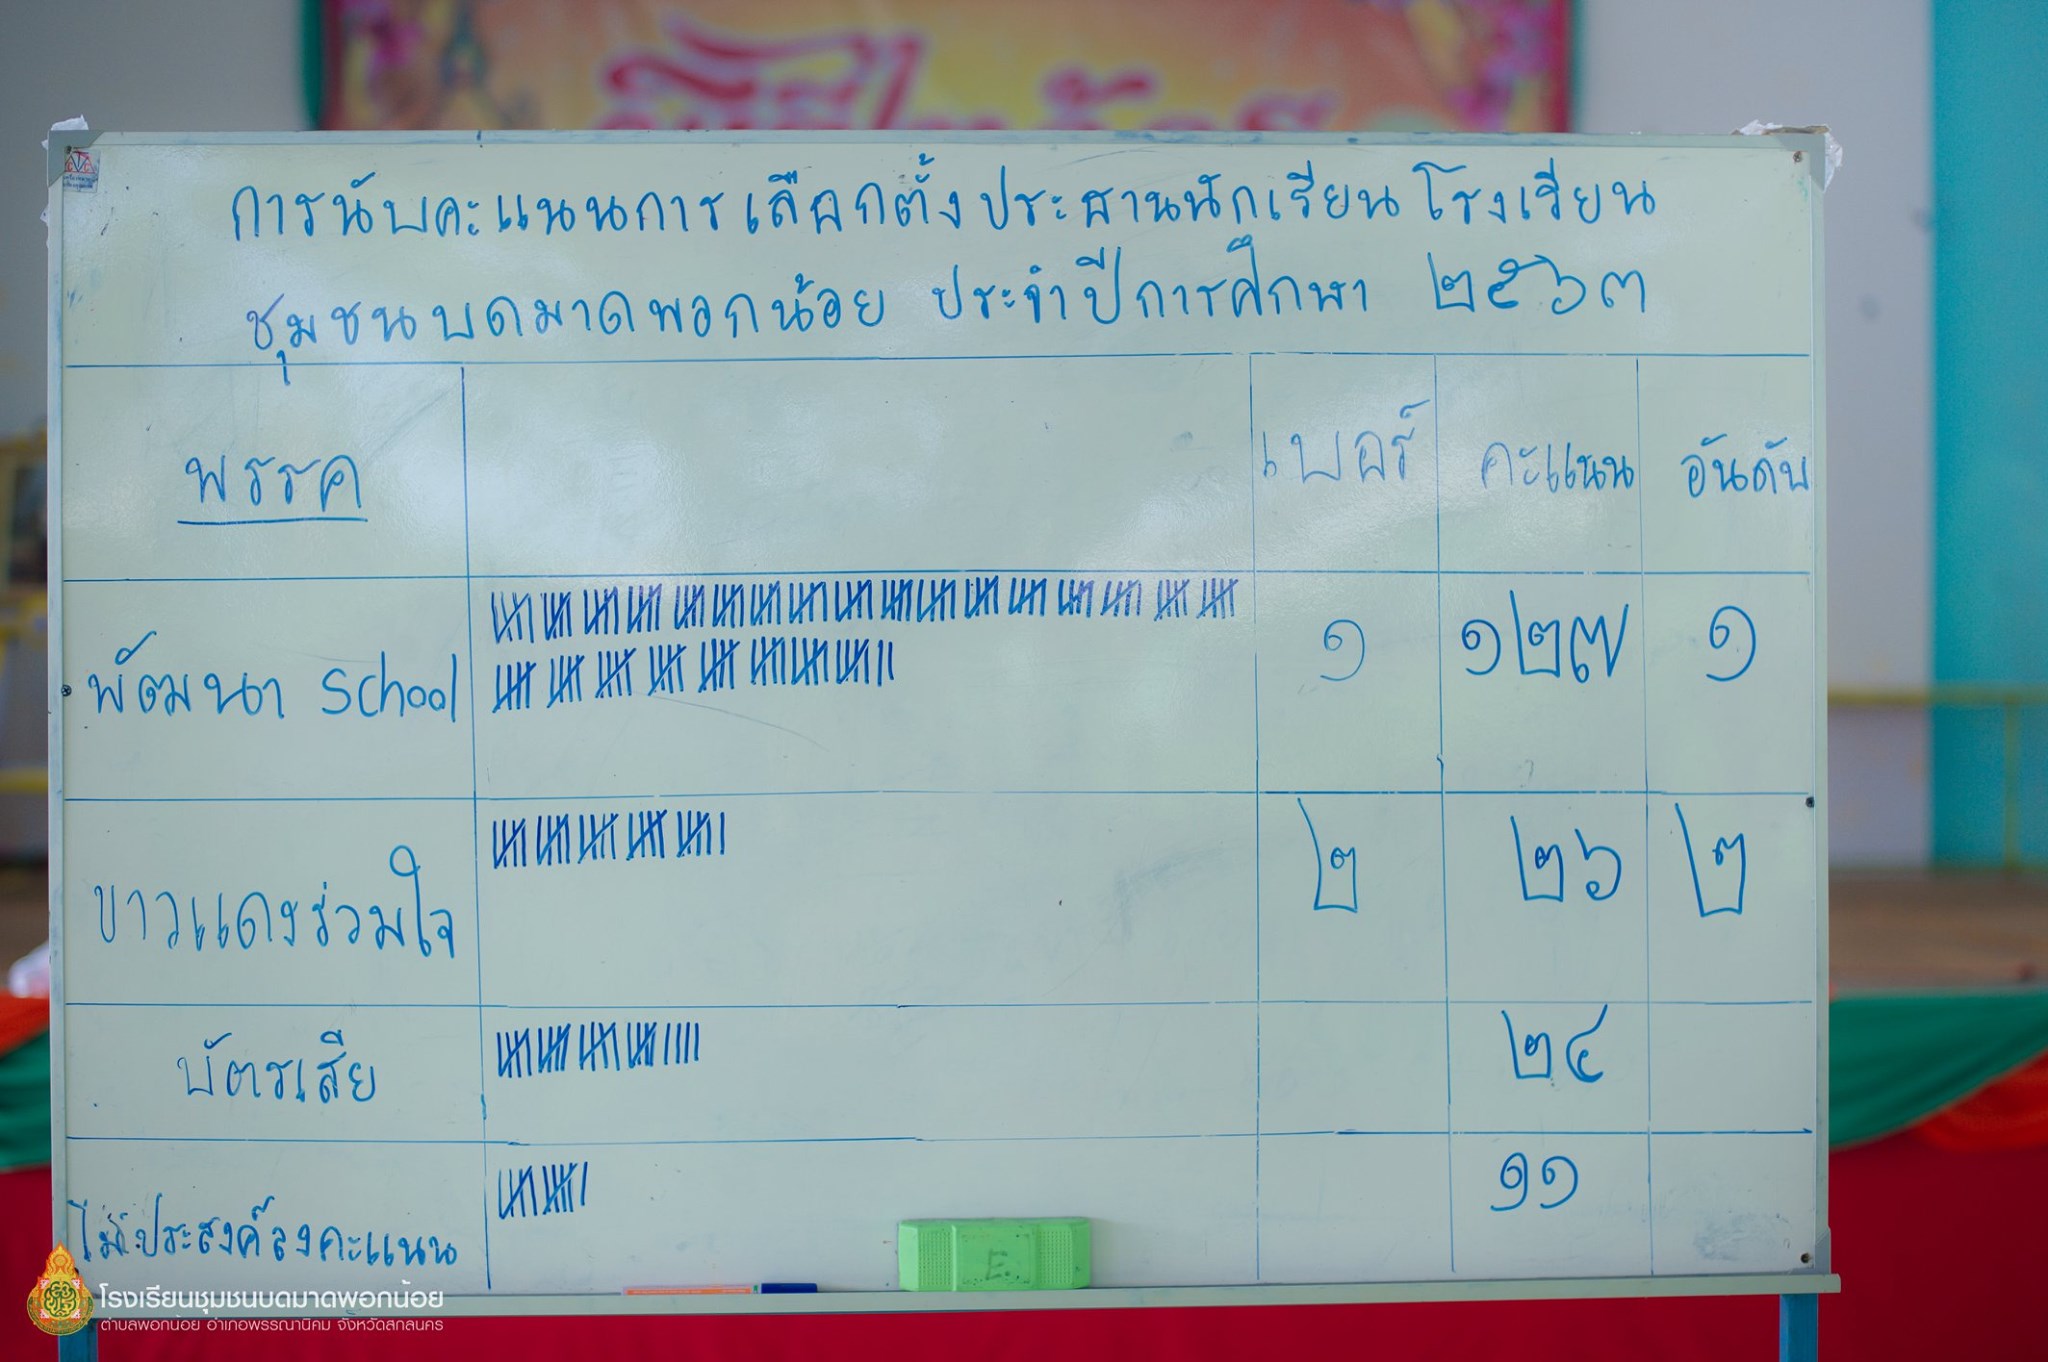 การนับคะแนนการเลือกตั้งประธานนักเรียนโรงเรียน
ชุมชนบดมาดพอกน้อย ประจำปีการศึกษา ๒๕๖๓
พรรค เบอร์ คะแนน อันดับ
พัฒนา School ๑ ๑๒๗ ๑
ขาวแดงร่วมใจ ๒ ๒๖ ๒
บัตรเสีย ๒๔
ไม่ประสงค์ลงคะแนน ๑๑
E.
โรงเรียนชุมชนบดมาดพอกน้อย
ตำบลพอกน้อย อำเภอพรรณานิคม จังหวัดสกลนคร